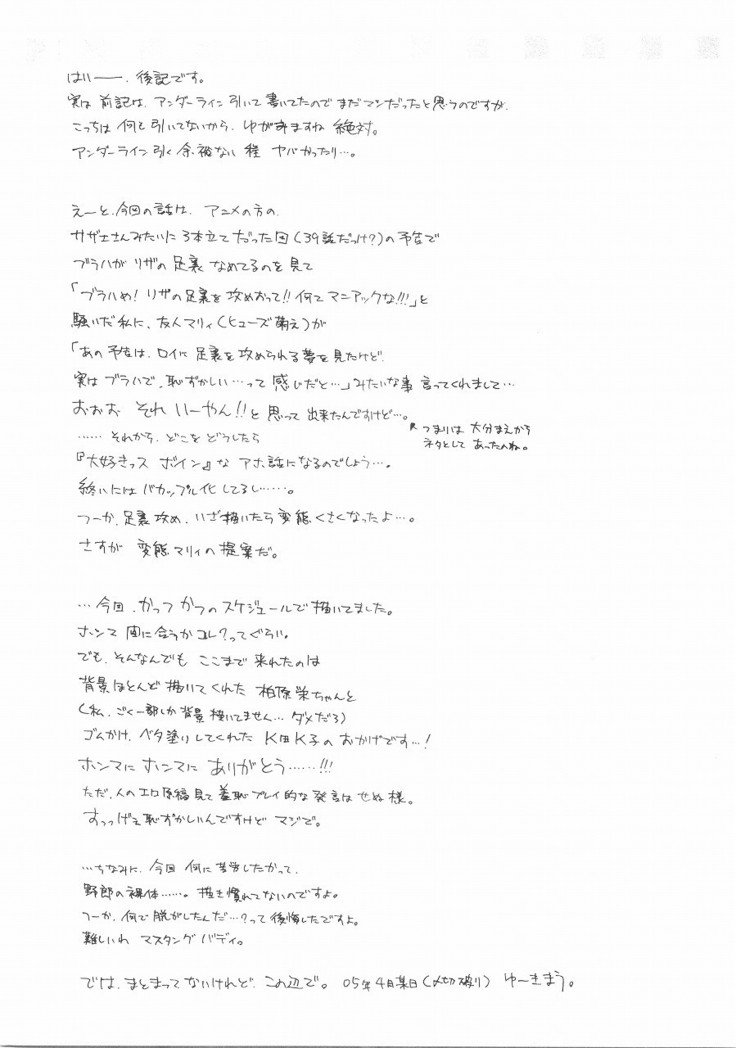 はいーー、後記です。
実は 前記は、アンダーライン引いて書いてたのでまだマシだったと思うのですが、
こっちは何も引いてないから、ゆがみますね 絶対。
アンダーライン引く余裕ない程 ヤバかったり…。
えーと、今回の話は、アニメの方の、
サザエさんみたいに3本立てだった回(39話だっけ?)の予告で
ブラハがリザの足裏なめてるのを見て
「ブラハめ!リザの足裏を攻めおって!!何てマニアックな!!!」と
騒いだ私に、友人マリィ(ヒューズ萌え)が
「あの予告は、ロイに足裏を攻められる夢を見たけど、
実はブラハで、恥ずかしい…って感じだと…」みたいな事言ってくれまして…
おおお それいーやん!!と思って出来たんですけど…。
つまりは 大分まえから
ネタとして あったんね。
…… それから、どこをどうしたら
『大好きっス ボイン』な アホ話になるのでしょう…。
終いにはバカップル化してるし……。
つーか、足裏攻め、いざ描いたら変態くさくなったよ…。
さすが 変態マリィの提案だ。
… 今回、かつつかつのスケジュールで描いてました。
ホンマ間に合うかコレ?ってぐらい。
でも、そんなんでも ここまで来れたのは
背景ほとんど描いてくれた 柏原栄ちゃんと
(私、ごく一部しか背景描いてません… ダメだろ)
ゴムかけ、ベタ塗りしてくれた K田K子のおかげです…!
ホンマにホンマに ありがとう……!!!
ただ、人のエロ原稿見て羞恥プレイ的な発言はせぬ様。
すっっげえ恥ずかしいんですけど マジで。
…ちなみに、今回 何に苦労したかって、
野郎の裸体……。描き慣れてないのですよ。
つーか、何で脱がしたんだ…?って後悔したですよ。
難しいわ マスタングバディ。
では、まとまってないけれど、この辺で。 05年4月某日(〆切破り) ゆーきまう。